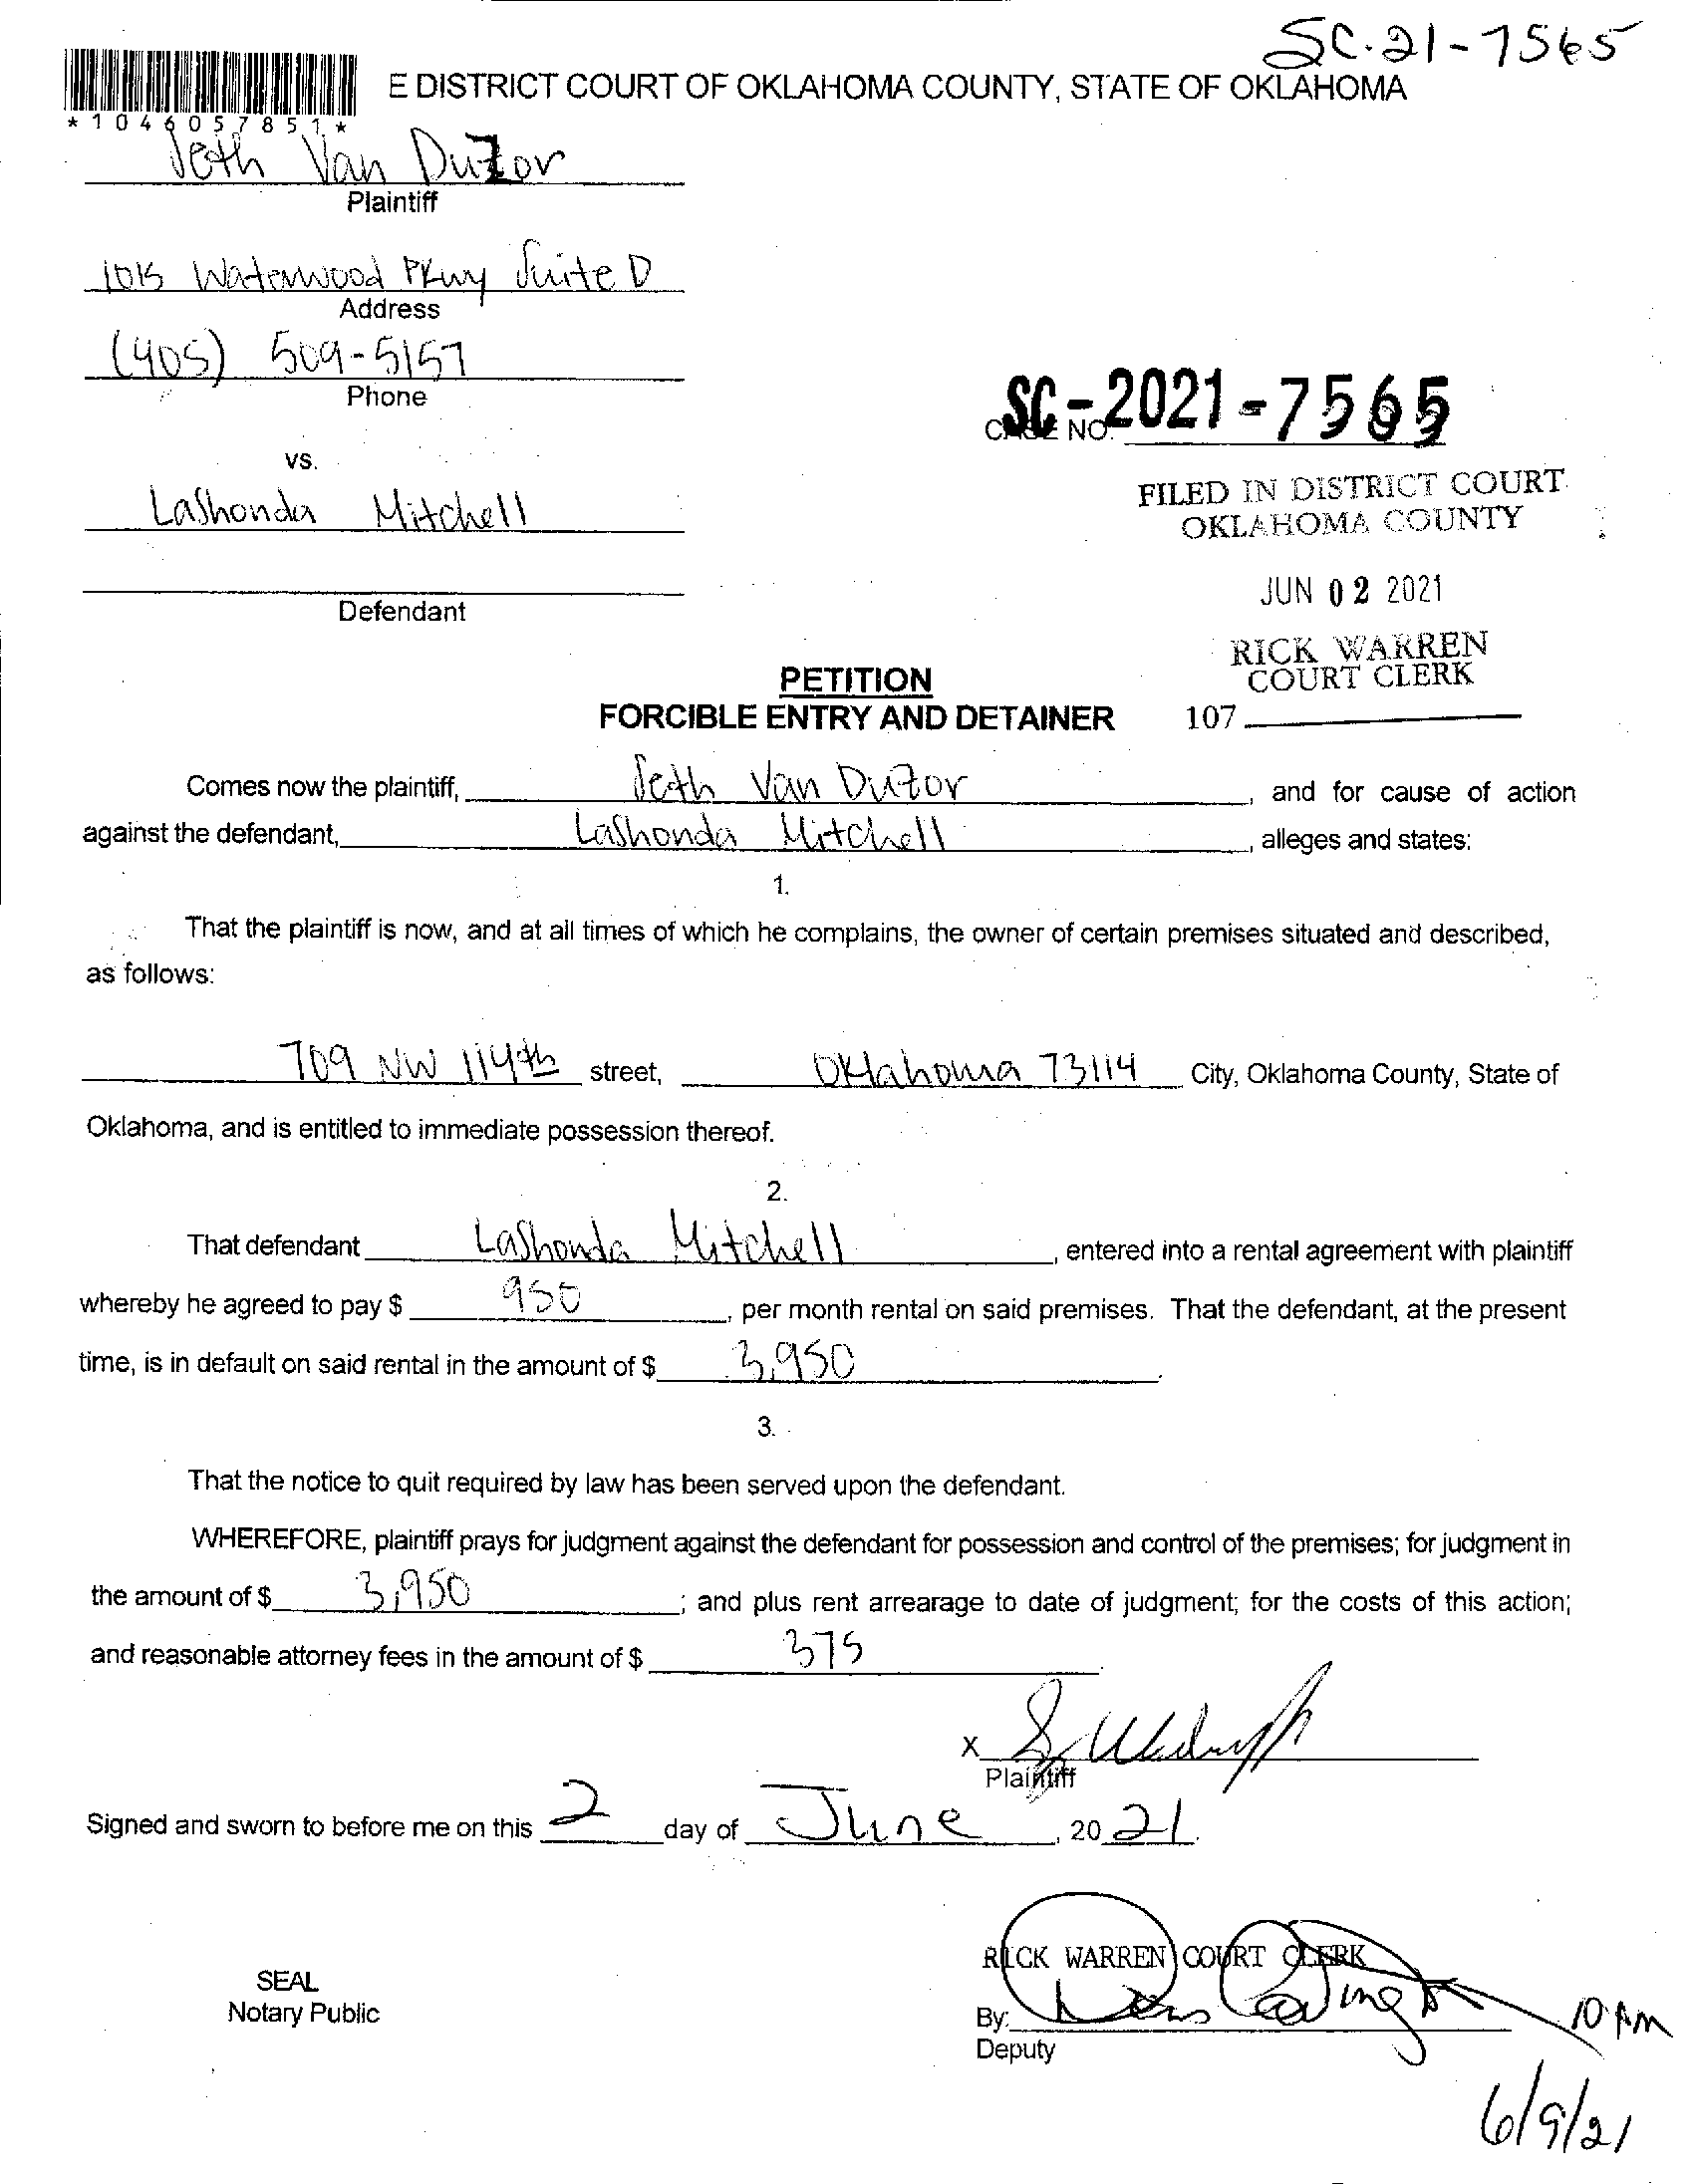 SC-21-7565
E DISTRICT COURT OF OKLAHOMA COUNTY, STATE OF OKLAHOMA
*1046057851*
Seth Van Duzor
Plaintiff
1015 Waterwood Pkwy Suite D
Address
(405) 509-5157
Phone
SC-2021-7565
CASE NO.
vs.
Lashonda Mitchell
FILED IN DISTRICT COURT
OKLAHOMA COUNTY
JUN 02 2021
Defendant
RICK WARREN
COURT CLERK
107
PETITION
FORCIBLE ENTRY AND DETAINER
Comes now the plaintiff, Seth Van Duzor, and for cause of action
against the defendant, Lashonda Mitchell, alleges and states:
1.
That the plaintiff is now, and at all times of which he complains, the owner of certain premises situated and described,
as follows:
709 NW 114th street, Oklahoma 73114 City, Oklahoma County, State of
Oklahoma, and is entitled to immediate possession thereof.
2.
That defendant Lashonda Mitchell, entered into a rental agreement with plaintiff
whereby he agreed to pay $ 950, per month rental on said premises. That the defendant, at the present
time, is in default on said rental in the amount of $ 3,950.
3.
That the notice to quit required by law has been served upon the defendant.
WHEREFORE, plaintiff prays for judgment against the defendant for possession and control of the premises; for judgment in
the amount of $ 3,950; and plus rent arrearage to date of judgment; for the costs of this action;
and reasonable attorney fees in the amount of $ 375.
X
Plaintiff
Signed and sworn to before me on this 2 day of June, 20 21.
RICK WARREN COURT CLERK
SEAL
Notary Public
By:
Deputy
10 AM
6/9/21